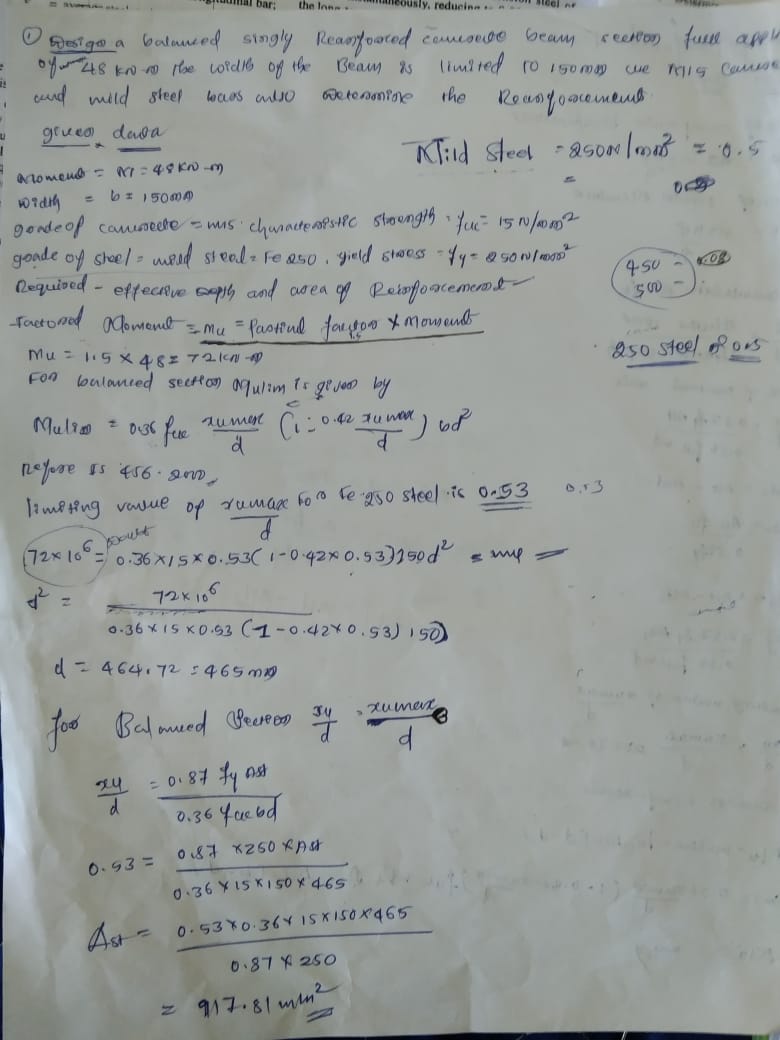 the long
steel
① Design a balanced singly Reanforced concrete beam section fure appli
of 48 kN-m the width of the Beam is limited to 150mm use M15 concre
and mild steel bars also Determine the Reanforcement
given data
Mild Steel = 250N/mm² = 0.5
Moment = M = 48KN-m
width = b = 150mm
grade of concrete = m15. characteristic strength = fck = 15 N/mm²
grade of steel = mild steel = Fe 250, yield stress = fy = 250 N/mm²
450 -
500 -
Required - effective depth and area of Reinforcement
Factored Moment = Mu = Partial factor × Moment
250 steel of 0.5
Mu = 1.5 × 48 = 72 kN-m
For balanced section Mulim is given by
Mulim = 0.36 fck xumax/d (1 - 0.42 xumax/d) bd²
Refere IS 456-2000,
limiting value of xumax/d For Fe-250 steel is 0.53 0.53
72×10⁶ = 0.36×15×0.53(1-0.42×0.53)150d²
d² = 72×10⁶ / 0.36×15×0.53 (1-0.42×0.53) 150
d = 464.72 = 465mm
for Balanced Section xu/d = xumax/d
xu/d = 0.87 fy Ast / 0.36 fck bd
0.53 = 0.87 ×250 ×Ast / 0.36×15×150×465
Ast = 0.53×0.36×15×150×465 / 0.87×250
= 917.81 mm²